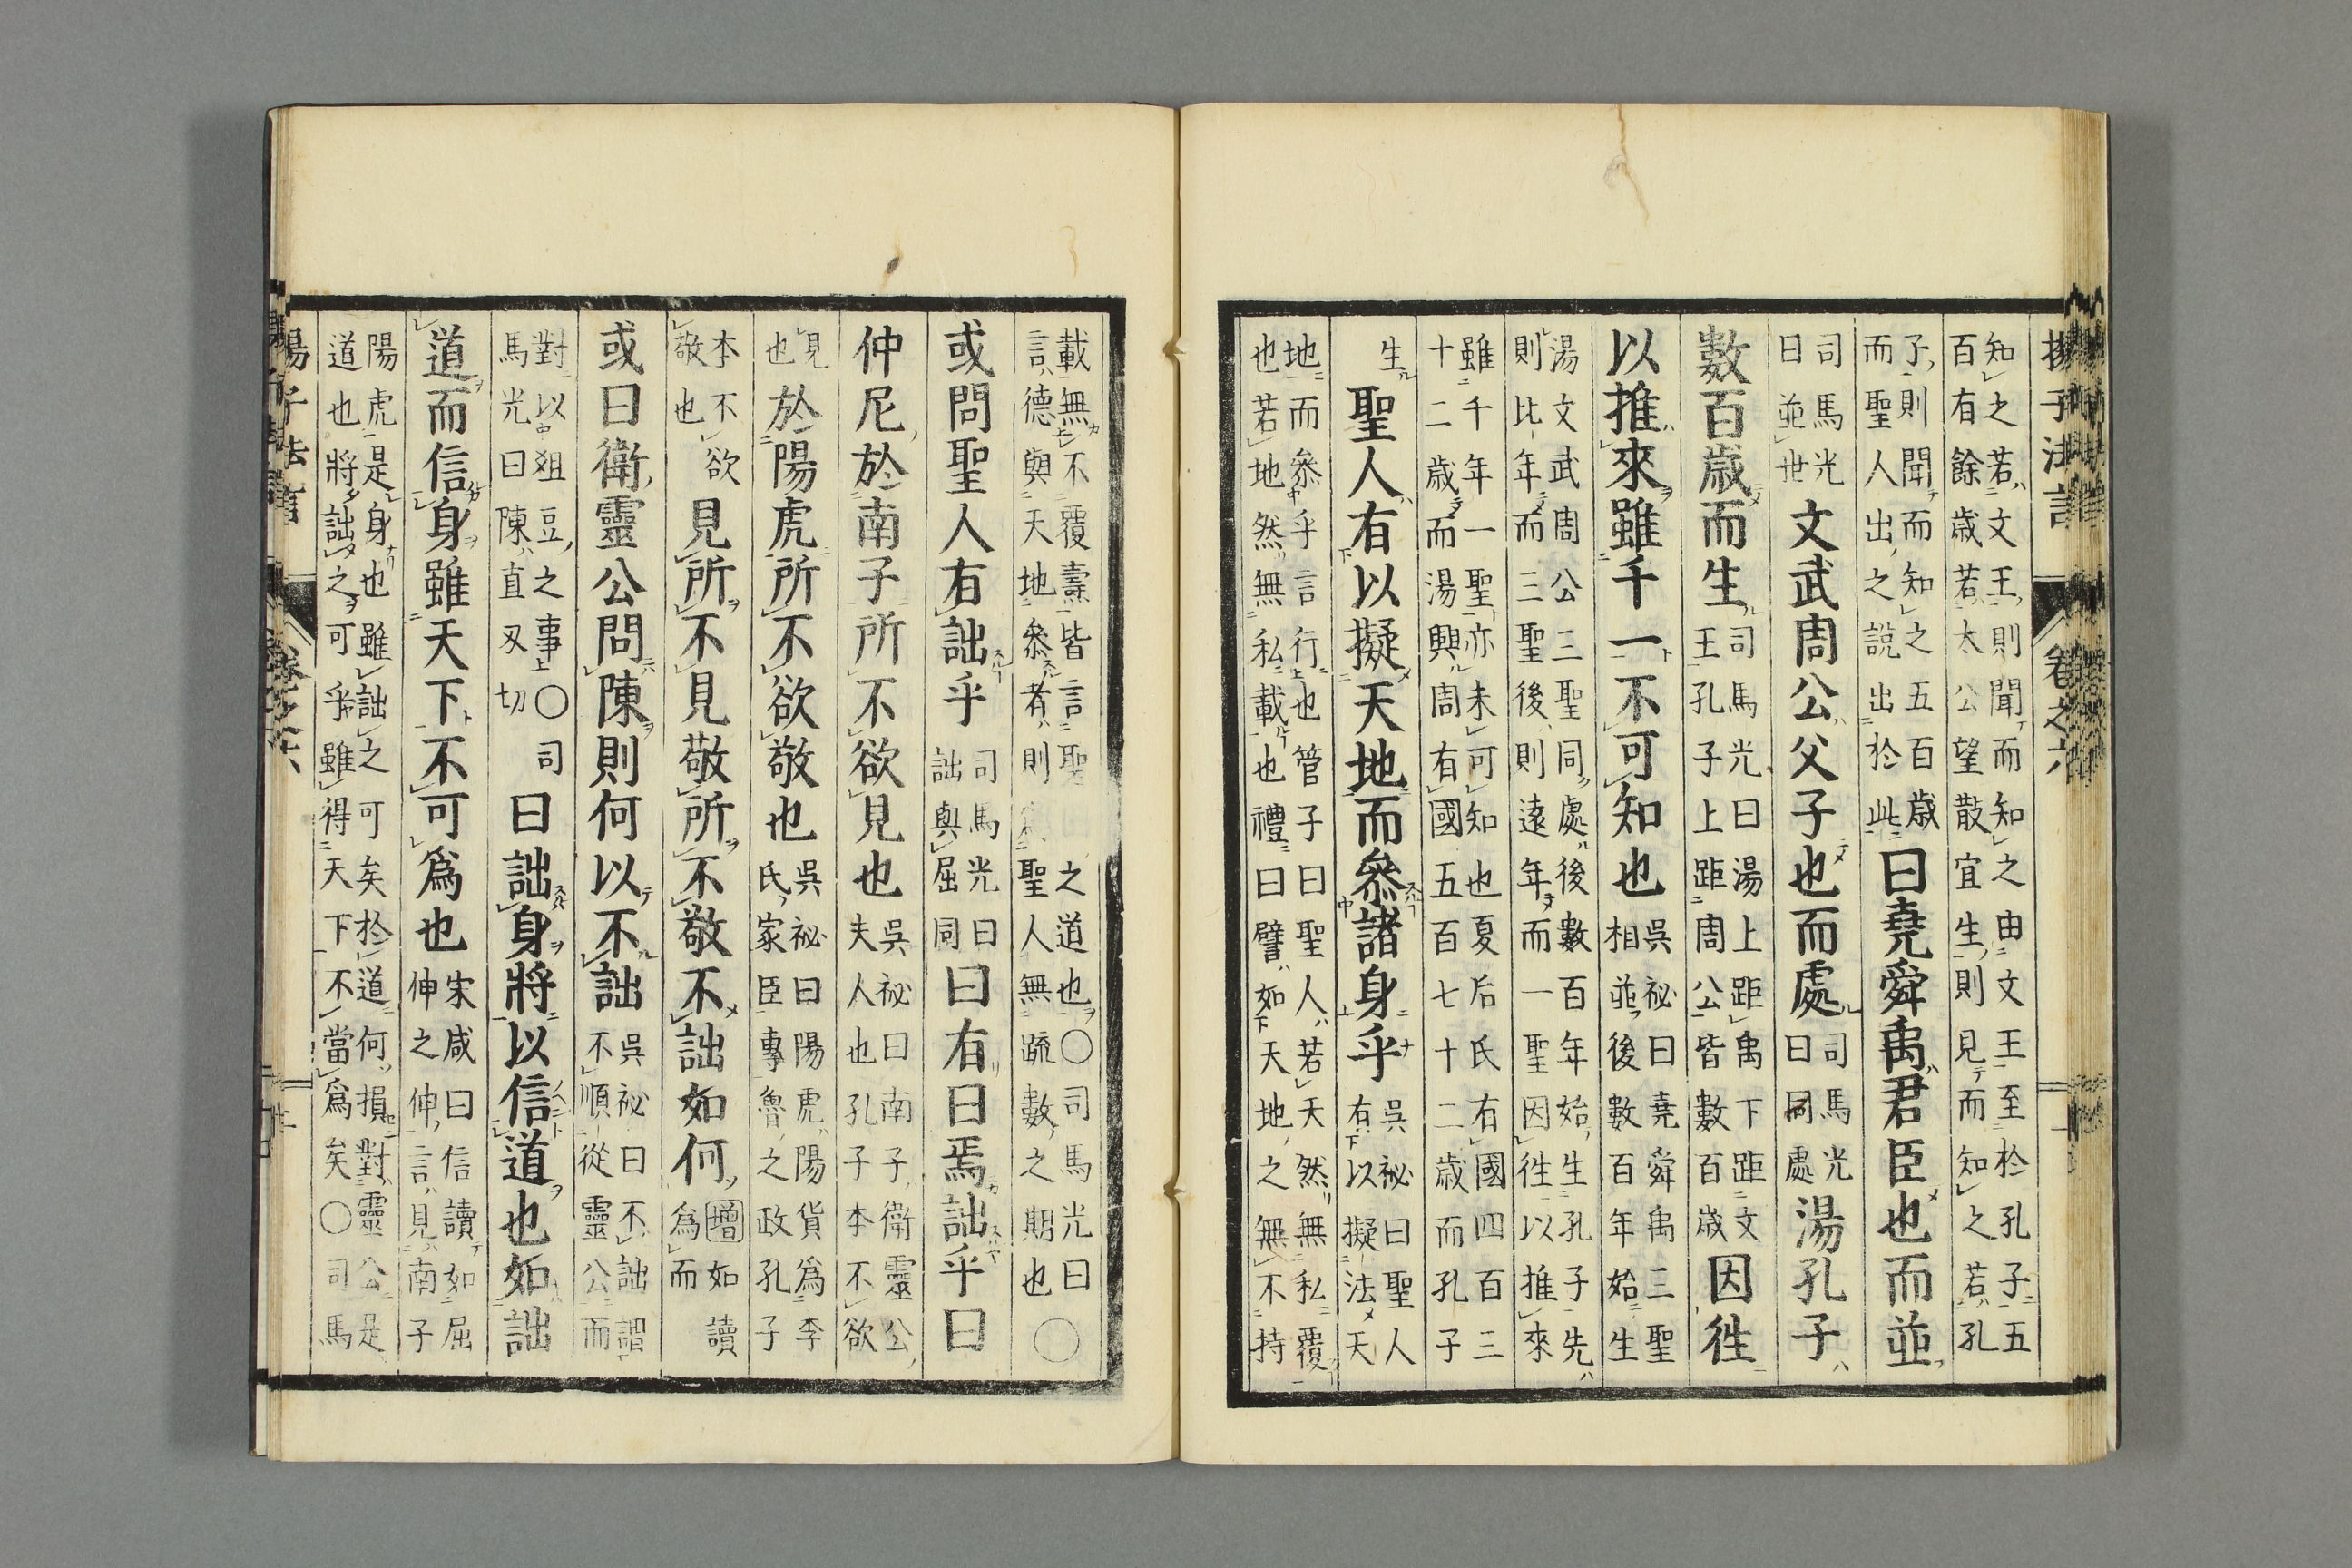 知之若文王則聞而知之由文王至於孔子五
百有餘歲若太公望散宜生則見而知之若孔
子則聞而知之五百歲
而聖人出之說出於此
曰堯舜禹君臣也而並
司馬光
曰並世
文武周公父子也而處
司馬光
曰同處
湯孔子
數百歲而生
司馬光曰湯上距禹下距文
王孔子上距周公皆數百歲
因徃
以推來雖千一不可知也
吳祕曰堯舜禹三聖
相並後數百年始生
湯文武周公三聖同處後數百年始生孔子先
則比年而三聖後則遠年而一聖因徃以推來
雖千年一聖亦未可知也夏后氏有國四百三
十二歲而湯興周有國五百七十二歲而孔子
生
聖人有以擬天地而參諸身乎
吳祕曰聖人
有以擬法天
地而參乎言行也管子曰聖人若天然無私覆
也若地然無私載也禮曰譬如天地之無不持
載無不覆燾皆言聖之道也〇司馬光曰
言德與天地參者則聖人無疏數之期也〇
或問聖人有詘乎
司馬光曰
詘與屈同
曰有曰焉詘乎曰
仲尼於南子所不欲見也
吳祕曰南子衞靈公
夫人也孔子本不欲
見
也
於陽虎所不欲敬也
吳祕曰陽虎陽貨爲李
氏家臣專魯之政孔子
本不欲
敬也
見所不見敬所不敬不詘如何
增如讀
爲而
或曰衞靈公問陳則何以不詘
吳祕曰不詘謂
不順從靈公而
對以俎豆之事〇司
馬光曰陳直刄切
曰詘身將以信道也如詘
道而信身雖天下不可爲也
宋咸曰信讀如屈
伸之伸言見南子
陽虎是身也雖詘之可矣於道何損對靈公是
道也將詘之可乎雖得天下不當爲矣〇司馬